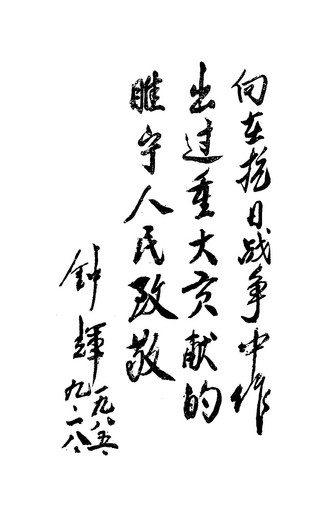 向在抗日战争中作
出过重大贡献的
睢宁人民致敬
钟辉
一九八五、
九·一八、